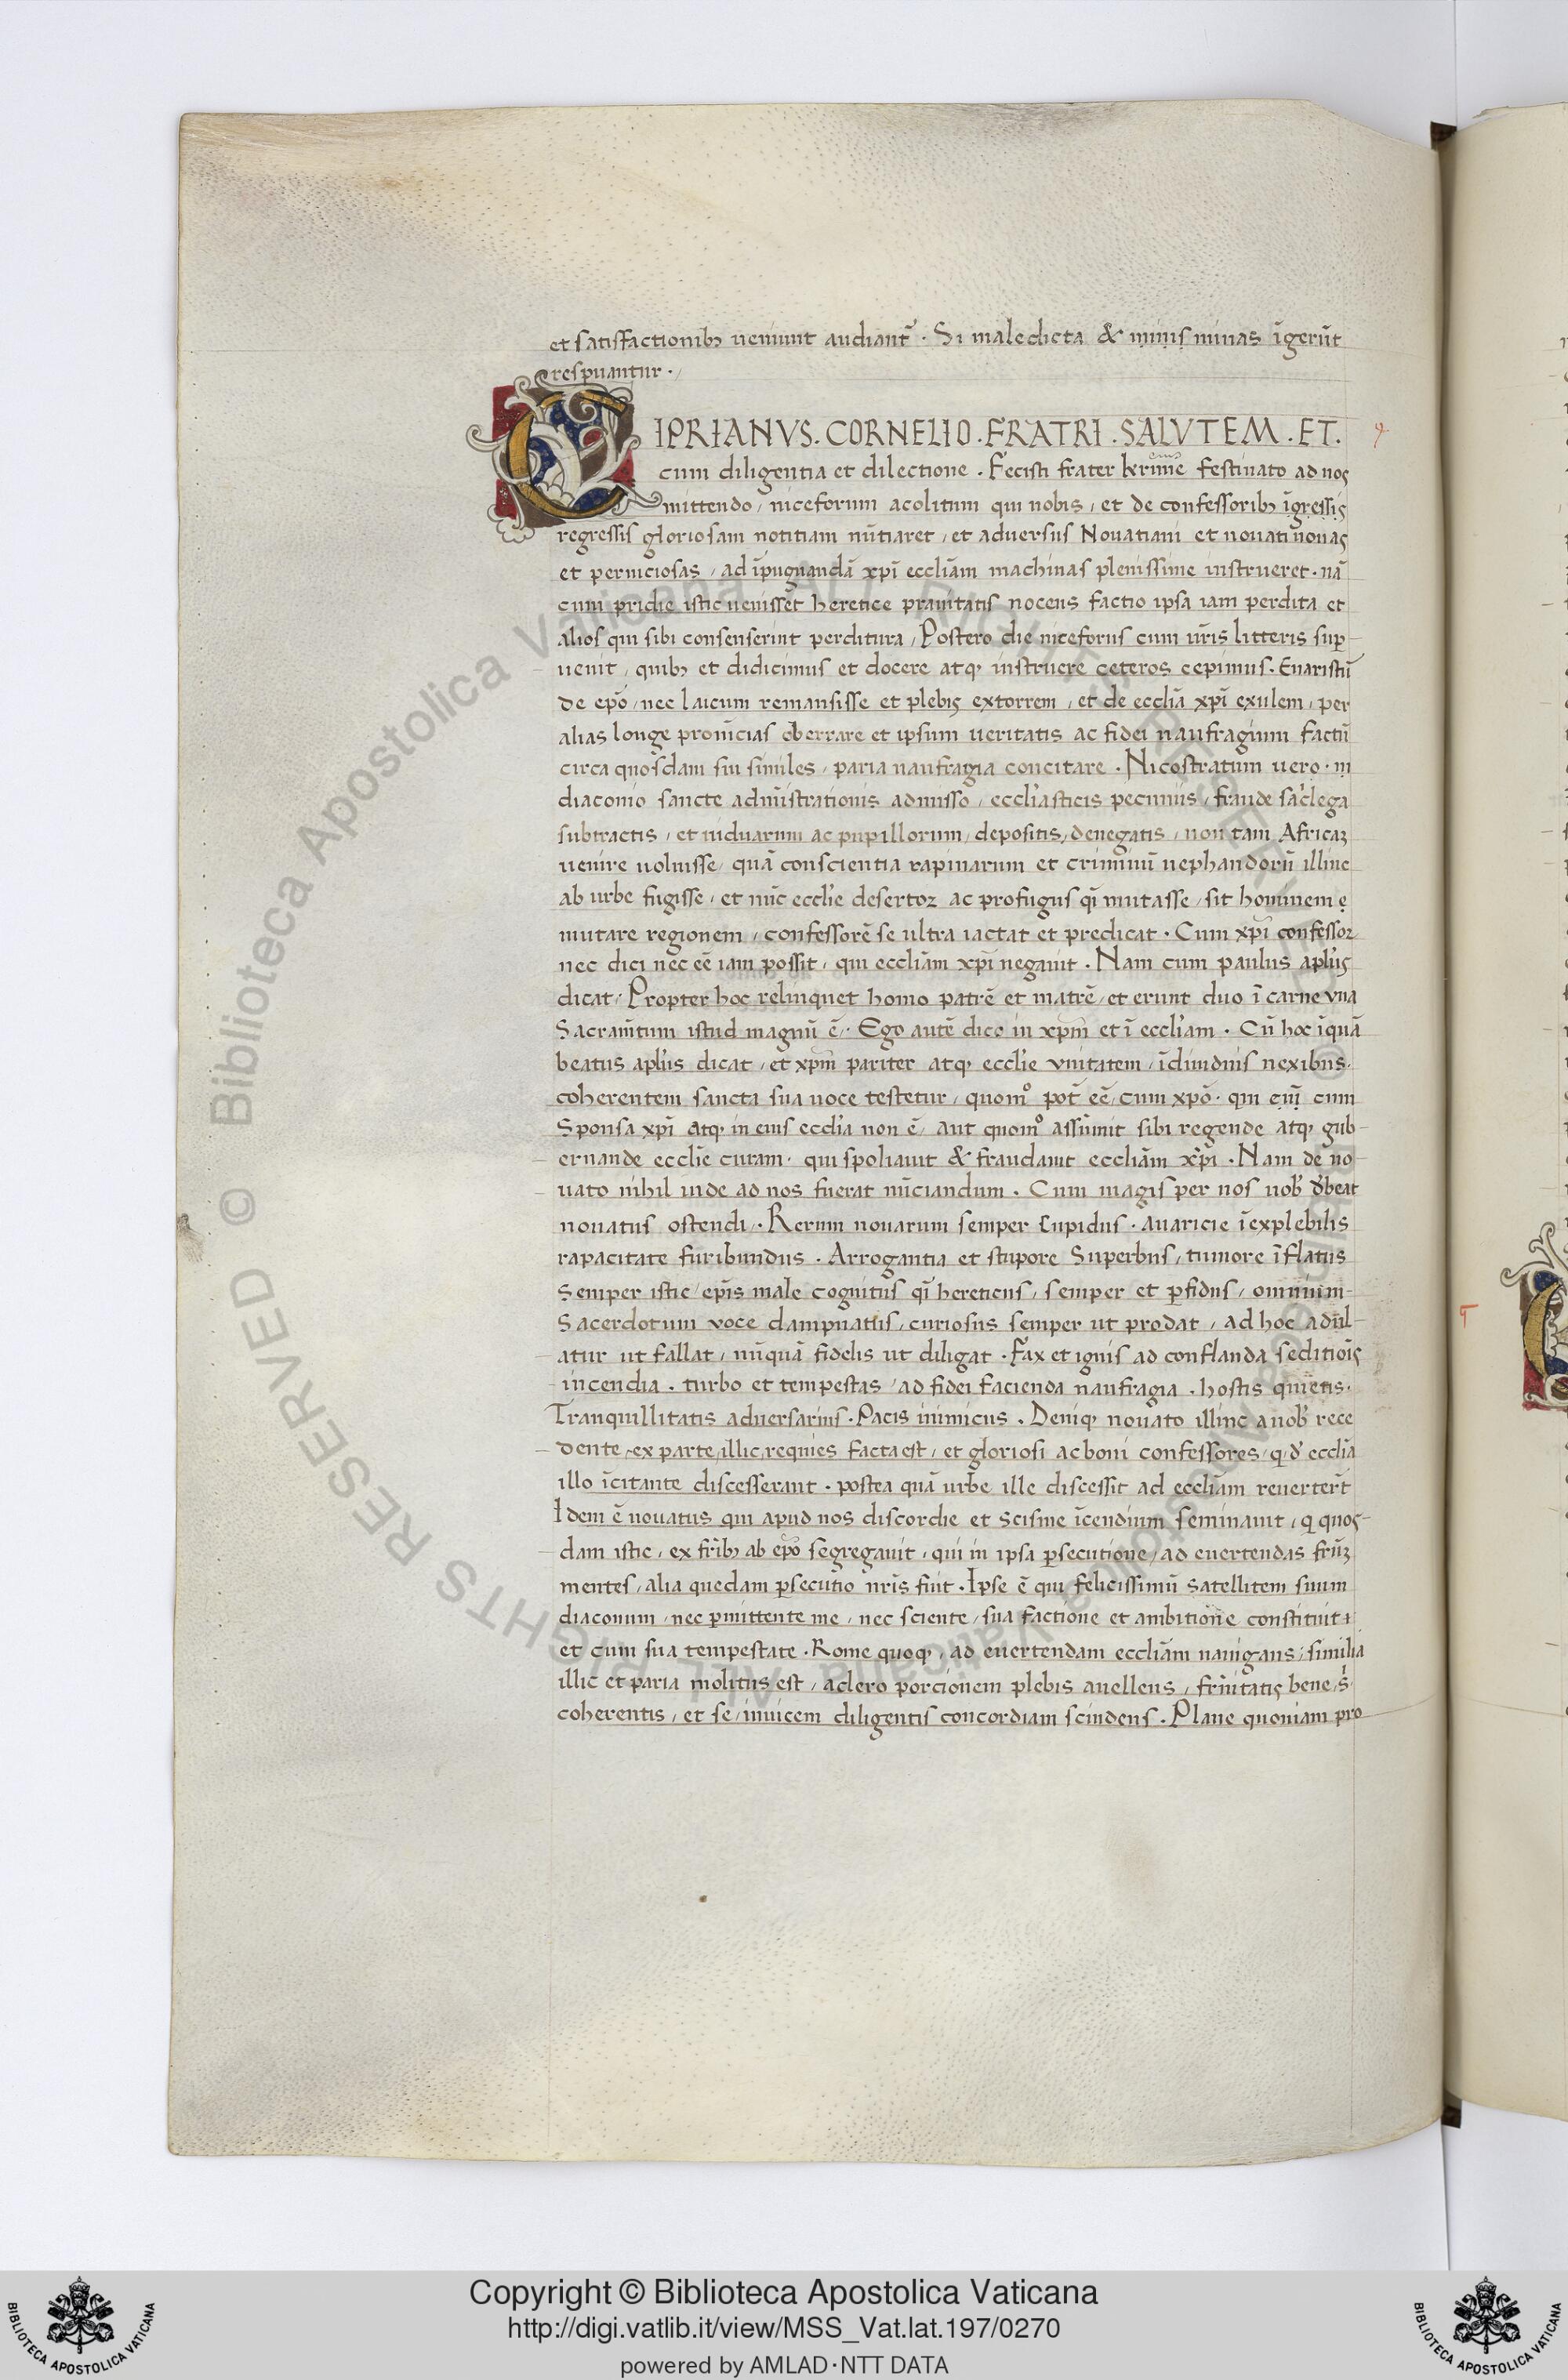 et satisfactionibꝫ ueniunt audiant᷑ . Si maledicta & minis minas īgerūt
respuantur .
CIPRIANVS . CORNELIO . FRATRI . SALVTEM . ET .
cum diligentia et dilectione . Fecisti frater kr̄ime festinato ad nos
mittendo / niceforum acolitum qui nobis / et de confessoribꝫ īgressis
regressis gloriosam notitiam nūtiaret / et aduersus Nouatiani et nouati nouas
et perniciosas / ad īpugnandā xp̄i eccl̄iam machinas plenissime instrueret . nā
cum pridie istic uenissēt heretice prauitatis nocens factio ipsa iam perdita et
alios qui sibi consenserint perditura / Postero die niceforus cum ur̄is litteris suꝑ-
uenit / quibꝫ et didicimus et docere atqꝫ instruere ceteros cepimus . Euaristū
de ep̄o / nec laicum remansisse et plebis extorrem / et de eccl̄ia xp̄i exulem / per
alias longe prouīcias oberrare et ipsum ueritatis ac fidei naufragium factū
circa quosdam sui similes / paria naufragia concitare . Nicostratum uero . in
diaconio sancte admīstrationis admisso / eccl̄iasticis pecuniis / fraude sac̓lega
subtractis / et uiduarum ac pupillorum / depositis / denegatis / non tam Africaꝫ
uenire uoluisse / quā conscientia rapinarum et criminū nephandorū illinc
ab urbe fugisse / et nūc eccl̄ie desertor ac profugus q̄i mutasse / sit hominem e
mutare regionem / confessorē se ultra iactat et predicat . Cum xp̄i confessor
nec dici nec eē iam possit / qui eccl̄iam xp̄i negauit . Nam cum paulus apl̄us
dicat / Propter hoc relinquet homo patrē et matrē / et erunt duo ī carne vna
Sacram̄tum istud magnū ē / . Ego autē dico in xp̄m et ī eccl̄iam . Cū hoc īquā
beatus apl̄us dicat / et xp̄m pariter atqꝫ eccl̄ie vnitatem / īdiuiduis nexibus .
coherentem sancta sua uoce testetur / quomº pot̄ eē / cum xp̄o . qui cū cum
Sponsa xp̄i atqꝫ in eius eccl̄ia non ē / aut quomº assūmit sibi regende atqꝫ gub-
ernande eccl̄ie curam . qui spoliauit & fraudauit eccl̄iam xp̄i . Nam de no
uato nihil inde ad nos fuerat nūciandum . Cum magis per nos uob̄ d̄beat
nouatus ostendi / . Rerum nouarum semper Cupidus . auaricie īexplebilis
rapacitate furibundus . Arrogantia et stupore Superbus / tumore īflatus
Semper istic / ep̄is male cognitus q̄i hereticus / semper et ꝑfidus / omnium-
Sacerdotum voce dampnatus / curiosus semper ut prodat / ad hoc adul-
atur ut fallat / nūquā fidelis ut diligat . Fax et ignis ad conflanda seditiōis
incendia . turbo et tempestas / ad fidei facienda naufragia . hostis quietis .
Tranquillitatis aduersarius . Pacis inimicus . Deniqꝫ nouato illinc a uob̄ rece
dente / ex parte / illic requies facta est / et gloriosi ac boni confessores / q̄ / d̄ eccl̄ia
illo īcitante discesserant . postea quā urbe ille discessit ad eccl̄iam reuertert̄
Idem ē nouatus qui apud nos discordie et scisme īcendium seminauit / q̄ quos-
dam istic / ex fr̄ibꝫ ab ep̄o segregauit / qui in ipsa ꝑsecutione / ad euertendas fr̄uꝫ
mentes / alia quedam ꝑsecutio nr̄is fuit . Ipse ē qui felicissimū satellitem suum
diaconum / nec ꝑmittente me / nec sciente / sua factione et ambitione constituit
et cum sua tempestate . Rome quoqꝫ / ad euertendam eccl̄iam nauigans / similia
illic et paria molitus est / a clero porcionem plebis auellens / fr̄nitatis bene / s̓
coherentis / et se / inuicem diligentis concordiam scindens . Plane quoniam pro
© Biblioteca Apostolica Vaticana ALL RIGHTS RESERVED
Copyright © Biblioteca Apostolica Vaticana
http://digi.vatlib.it/view/MSS_Vat.lat.197/0270
powered by AMLAD·NTT DATA
BIBLIOTECA APOSTOLICA VATICANA
BIBLIOTECA APOSTOLICA VATICANA